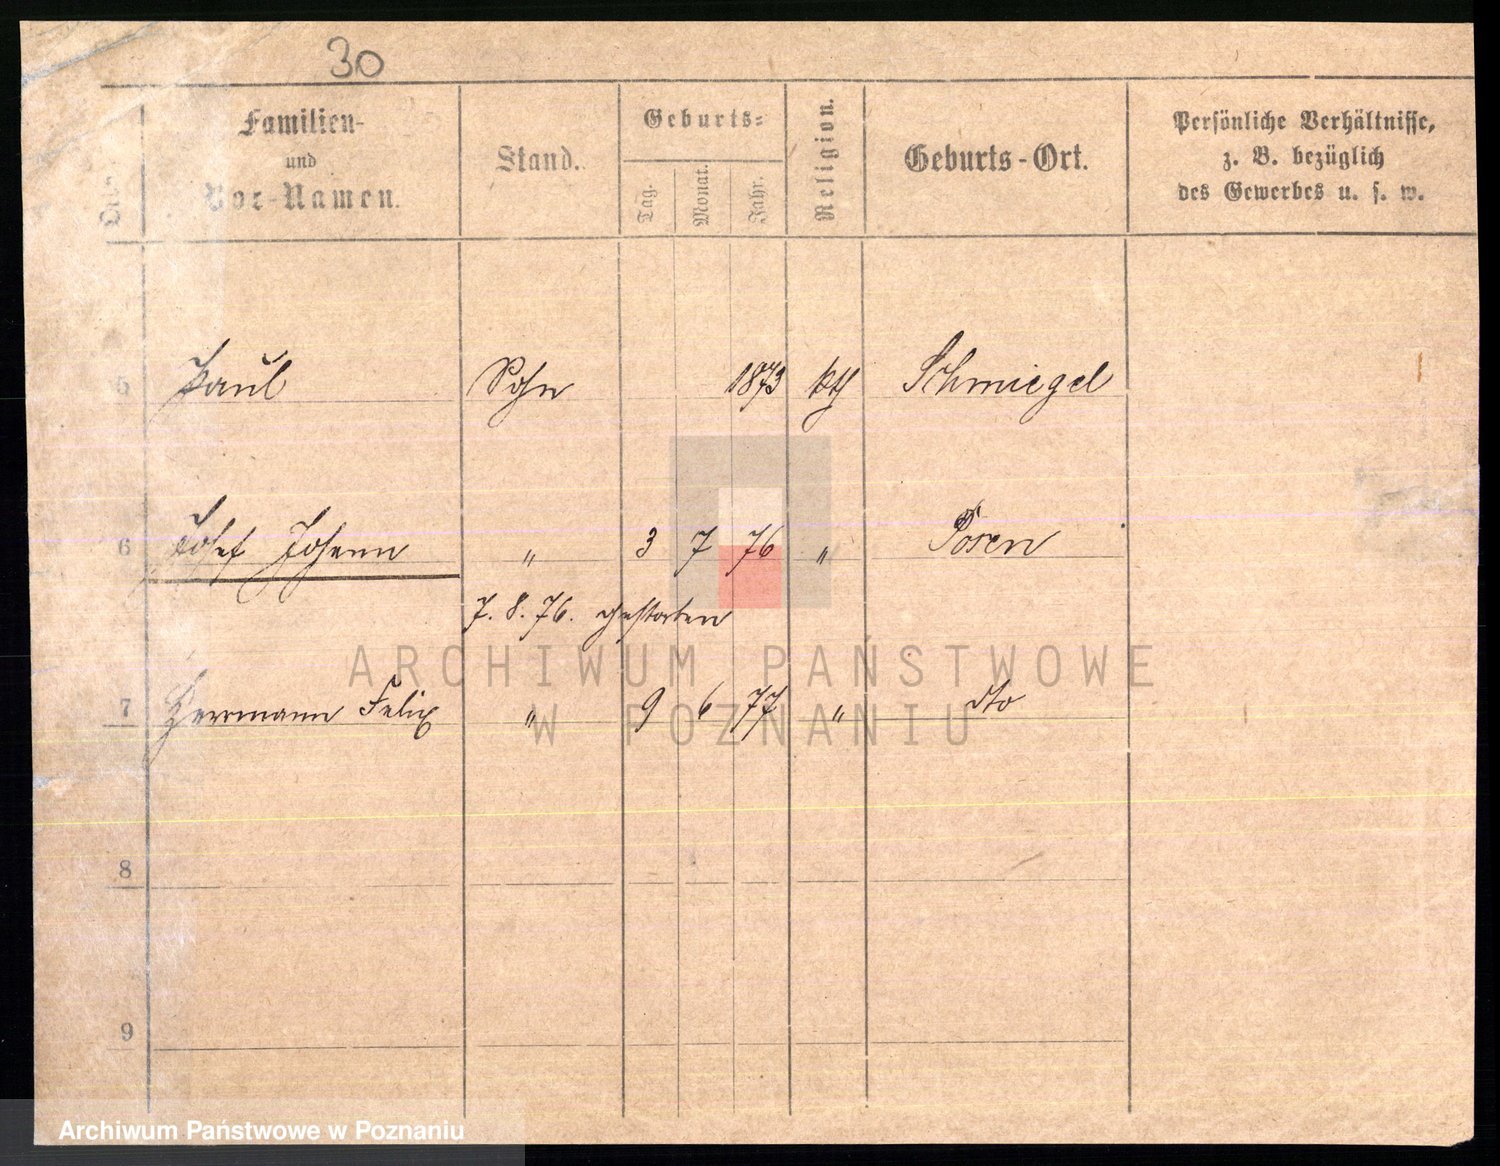 30
Familien-
und
Vor-Namen.
Stand.
Geburts-
Tag.
Monat.
Jahr.
Religion.
Geburts-Ort.
Persönliche Verhältnisse,
z. B. bezüglich
des Gewerbes u. s. w.
5 Paul Sohn 1873 kth Schmiegel
6 Josef Johann " 3 7 76 " Posen
7. 8. 76. gestorben
7 Herrmann Felix " 9 6 77 " dto
8
9
ARCHIWUM PAŃSTWOWE
W POZNANIU
Archiwum Państwowe w Poznaniu